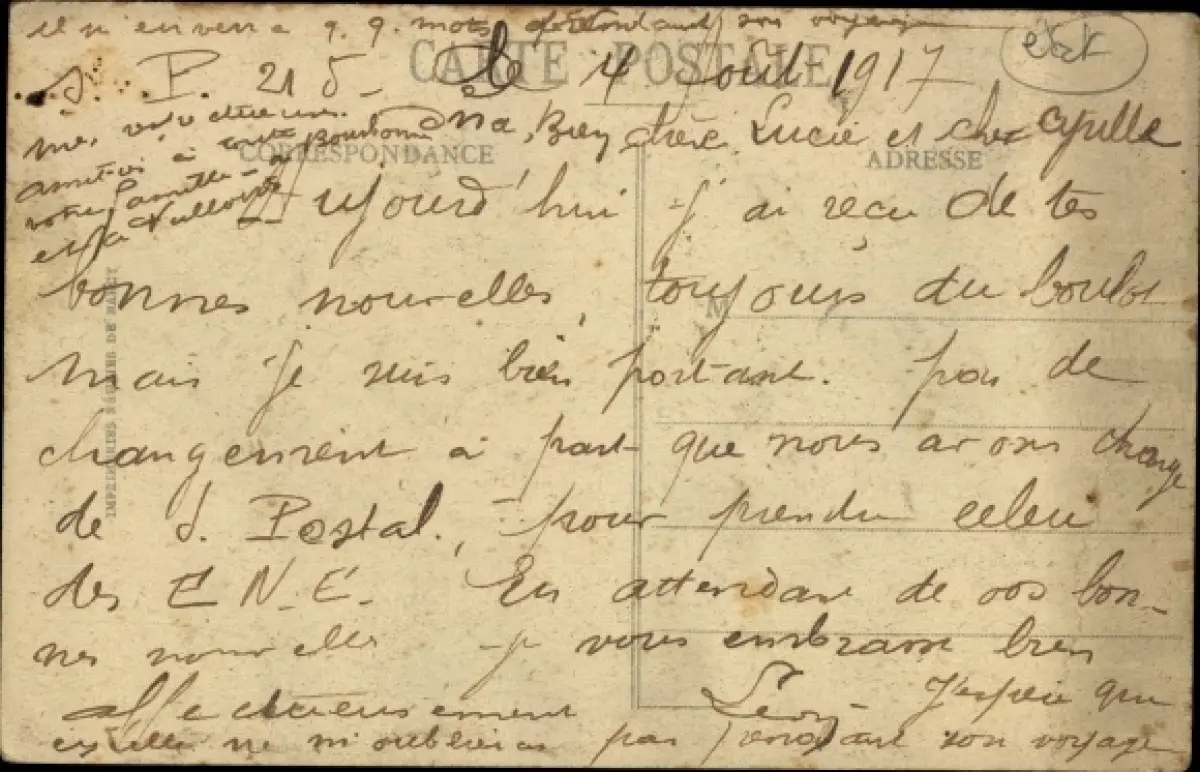 il m'enverra q. q. mots pendant son voyage
état
CARTE POSTALE
S. P. 215 - le 4 Août 1917
mes
amitiés à toute
votre famille -
et à
CORRESPONDANCE
ADRESSE
Ma Bien chère Lucie et cher Cyrille
Aujourd'hui j'ai reçu de tes
bonnes nouvelles, toujours du boulot
mais je suis bien portant. pas de
changement à part que nous avons change
de S. Postal, pour prendre celui
des E. N. E. En attendant de vos bon-
nes nouvelles je vous embrasse bien
affectueusement
Léon
J'espère que
Cyrille ne m'oubliera pas pendant son voyage
M
IMPRIMERIES RÉUNIES DE NANCY